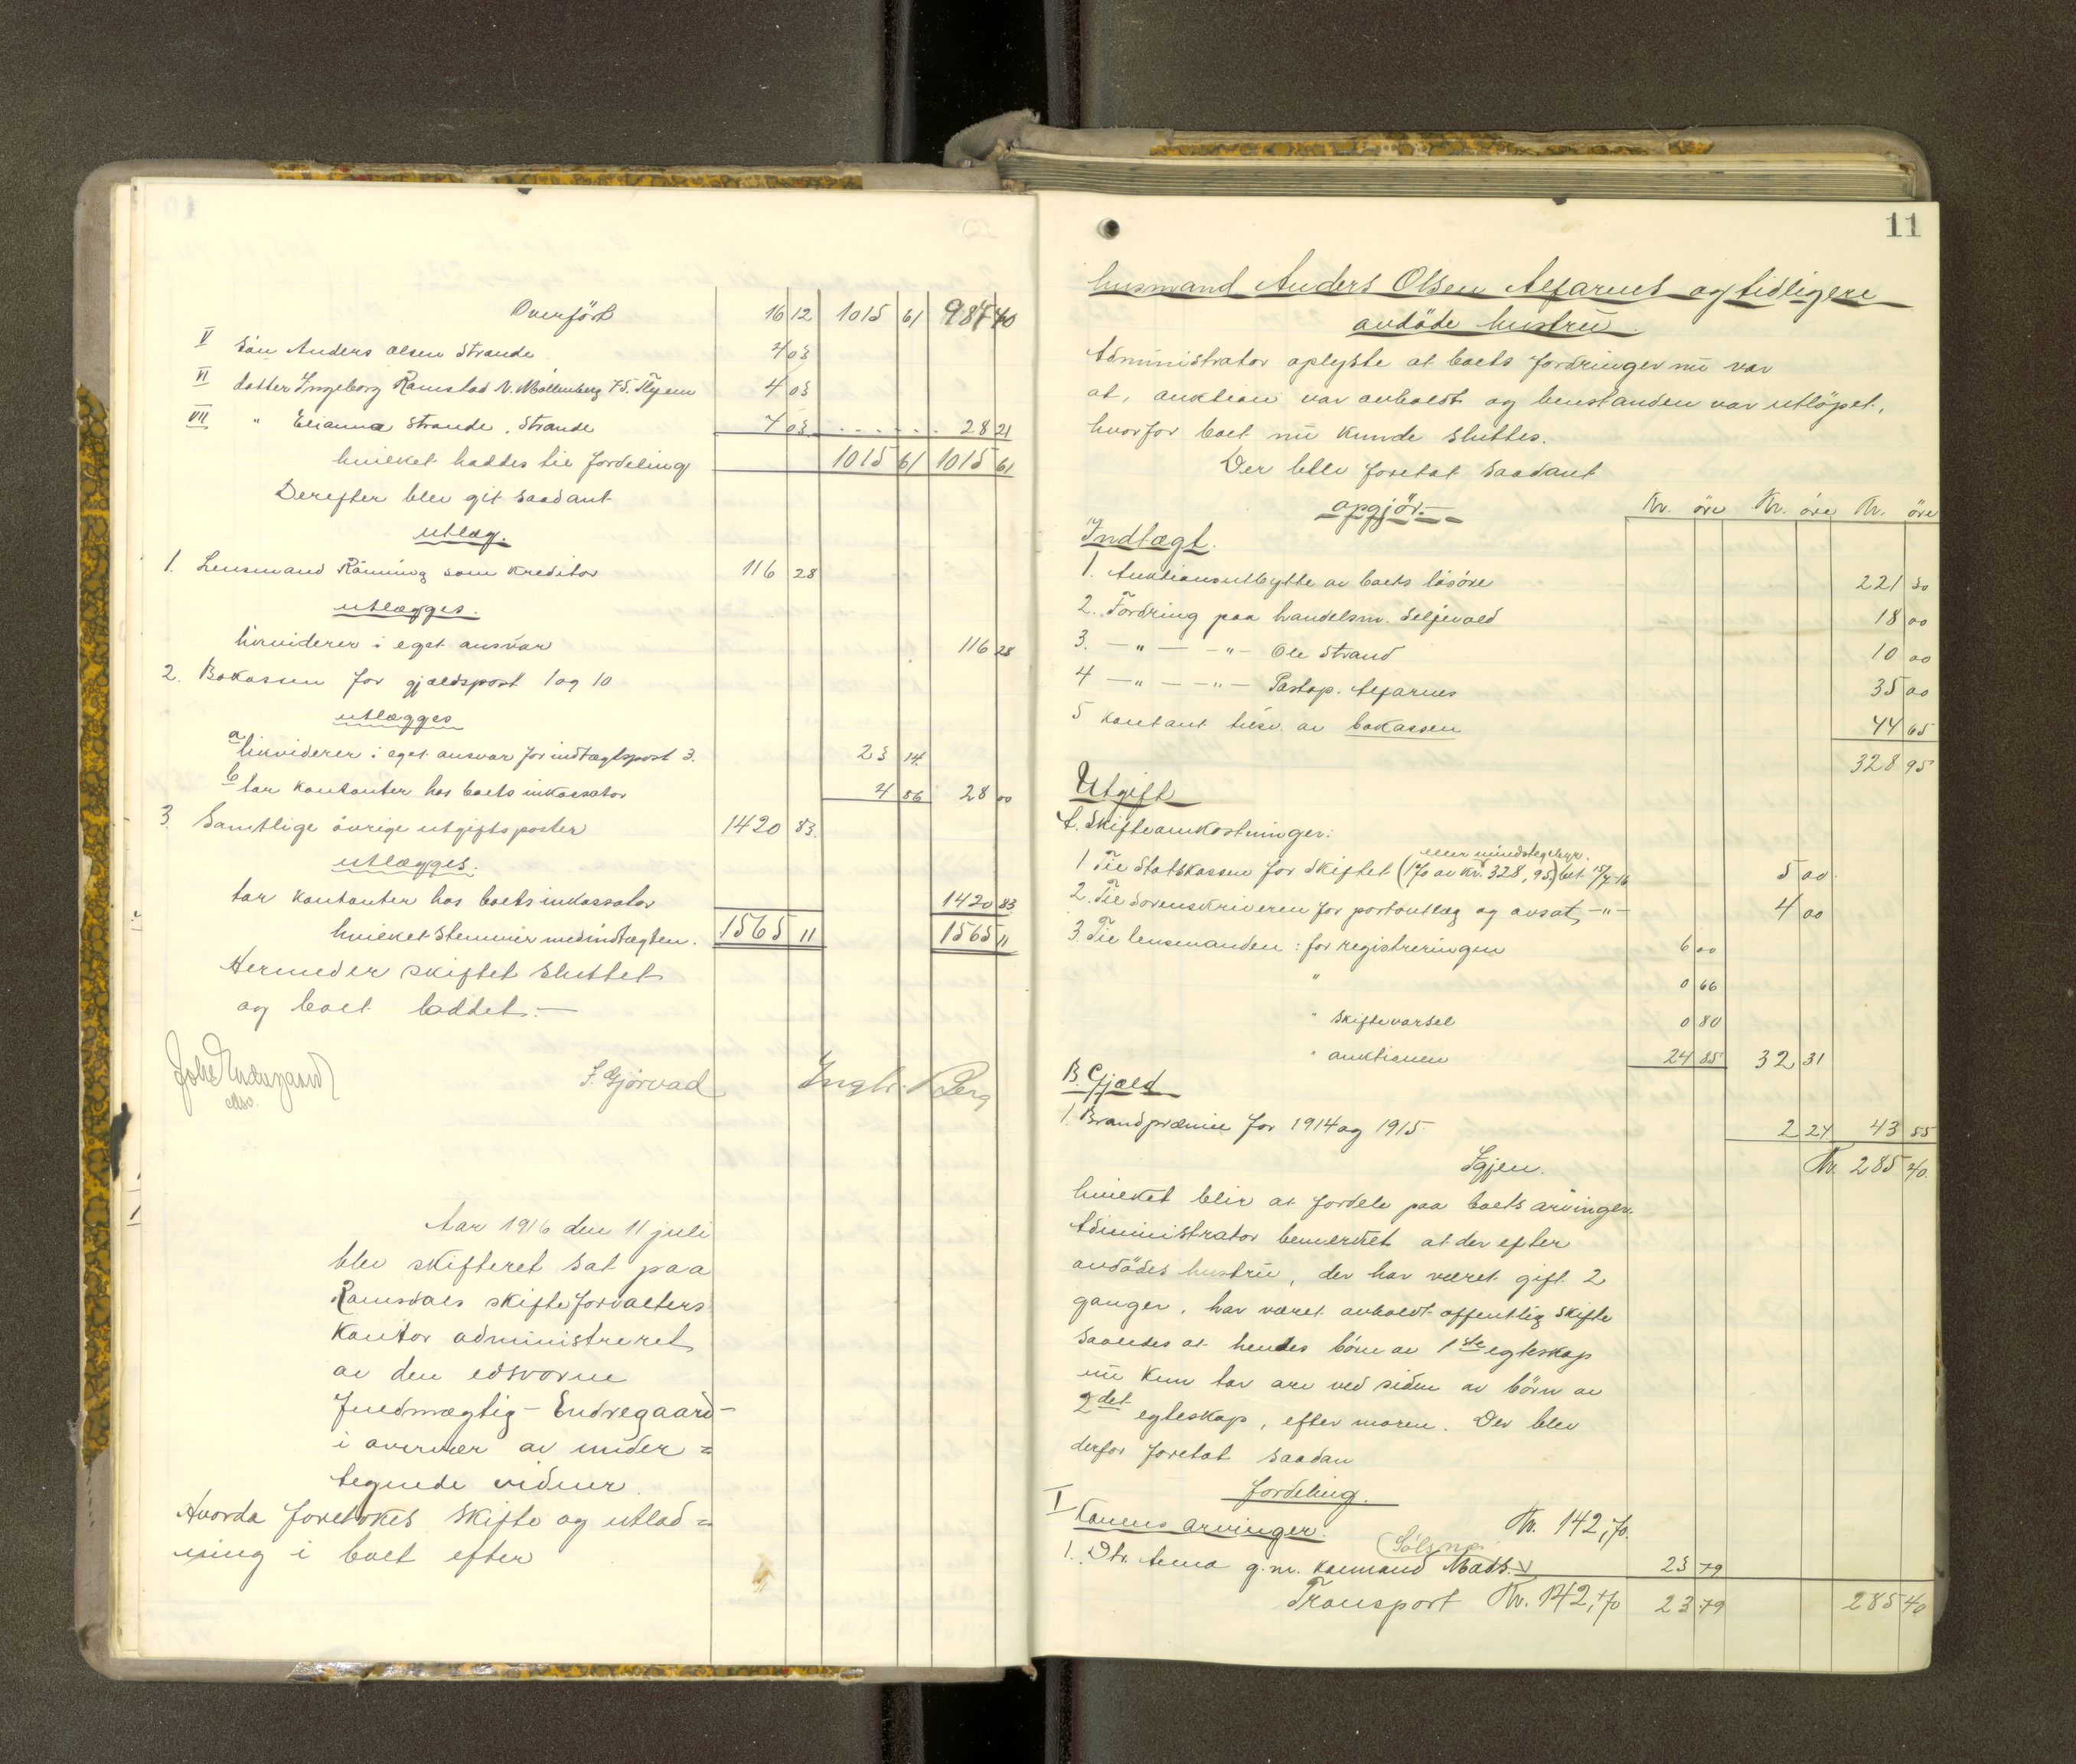 Overført 16 12 1015 61 987 40
V Søn Anders Olsen Strande 4 03
VI datter Ingeborg Ramstad N. Møllenberg 75. Thjem 4 03
VII " Elianna Strande, Strande 4 03 28 21
hvilket haddes til fordeling 1015 61 1015 61
Derefter blev git saadant
utlæg.
1. Lensmand Røning som kreditor 116 28
utlægges.
likviderer i eget ansvar 116 28
2. Bokassen for gjældspost 1 og 10
utlægges
a likviderer i eget ansvar for indtægtspost 3. 23 14
b tar kontanter hos boets inkassator 4 86 28 00
3. Samtlige øvrige utgiftsposter 1420 83
utlægges.
tar kontanter hos boets inkassator 1420 83
hvilket stemmer med indtægten. 1565 11 1565 11
Hermed er skiftet sluttet
og boet laddet.-
F. Gjørvad
Aar 1916 den 11 juli
blev skifteret sat paa
Romsdals skifteforvalters
kontor administreret
av den edsvorne
fuldmægtig - Endregaard -
i overvær av under=
tegnede vidner.
Hvorda foretokes skifte og utlod=
ning i boet efter
11
husmand Anders Olsen Alfarnes og tidligere
avdøde hustru.
Administrator oplyste at boets fordringer nu var
at, auktion var avholdt og henstanden var utløpet,
hvorfor boet nu kunde sluttes.
Der blev foretat saadant
opgjør.-
Kr. øre Kr. øre Kr. øre
Indtægt.
1. Auktionsutbytte av boets løsøre 221 30
2. Fordring paa handelsm. Seljevold 18 00
3. -"- -"- Ole Strand 10 00
4 -"- -"- Pastøp. Alfarnes 35 00
5 kontant tilsv. av bokassen 44 65
328 95
Utgift
A. Skifteomkostninger:
eller mindstegebyr.
1 Til Statskassen for skiftet (1% av Kr. 328,95) bet. 15/7-16 5 00
2. Til Sorenskriveren for portoutlæg og avsat, -"- 4 00
3. Til lensmanden: for registreringen 6 00
" 0 66
" skiftevarsel 0 80
" auktionen 24 85 32 31
B. Gjæld
1. Brandpræmie for 1914 og 1915 2 24 43 55
Igjen. Kr. 285 40.
hvilket blir at fordele paa boets arvinger.
Administrator bemerket at der efter
avdødes hustru, der har været gift 2
ganger, har været avholdt offentlig skifte
saaledes at hendes børn av 1ste egteskap
nu kun tar arv ved siden av børn av
2det egteskap, efter moren. Der blev
derfor foretat saadan
fordeling.
I Konens arvinger. Kr. 142,70.
(Sølsnes
1. Dtr. Anna g.m. kaarmand Mads 23 79
Transport Kr. 142,70 23 79 285 40